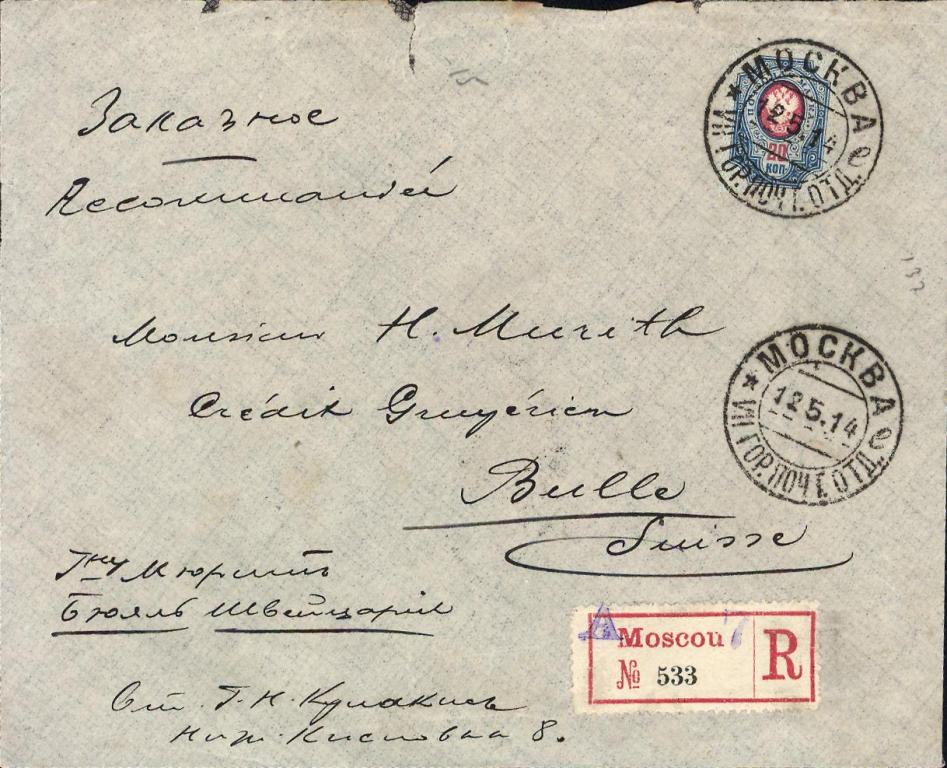 Заказное
Recommandée
МОСКВА
12.5.14
VII ГОР.ПОЧТ.ОТД.
20
КОП
137
Monsieur H. Murith
Crédit Gruyérien
Bulle
Suisse
МОСКВА
12.5.14
VII ГОР.ПОЧТ.ОТД.
Гну Мюритъ
Бюлль Швейцарія
A Moscou 7
№ 533
R
От Г. Н. Кулакинъ
Ниж. Кисловка 8.